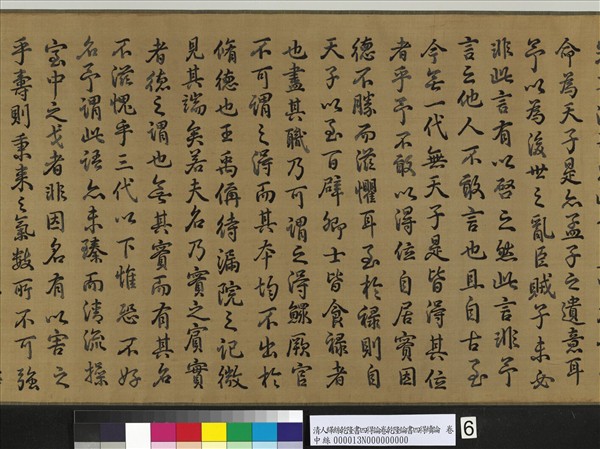 命為天子是亦孟子之遺意耳
予以為後世之亂臣賊子未必
非此言有以啓之然此言非予
言之他人不敢言也且自古至
今無一代無天子是皆得其位
者乎予不敢以得位自居實因
德不勝而滋懼耳至於祿則自
天子以至百辟卿士皆食祿者
也盡其職乃可謂之得鰥厥官
不可謂之得而其本均不出於
脩德也王禹偁待漏院之記微
見其端矣若夫名乃實之賓實
者德之謂也無其實而有其名
不滋愧乎三代以下惟恐不好
名予謂此語亦未臻而清流操
室中之戈者非因名有以害之
乎壽則秉來之氣數所不可強
清人緙絲乾隆書四得論卷乾隆論書四得續論 卷
中絲 000013N000000000
6